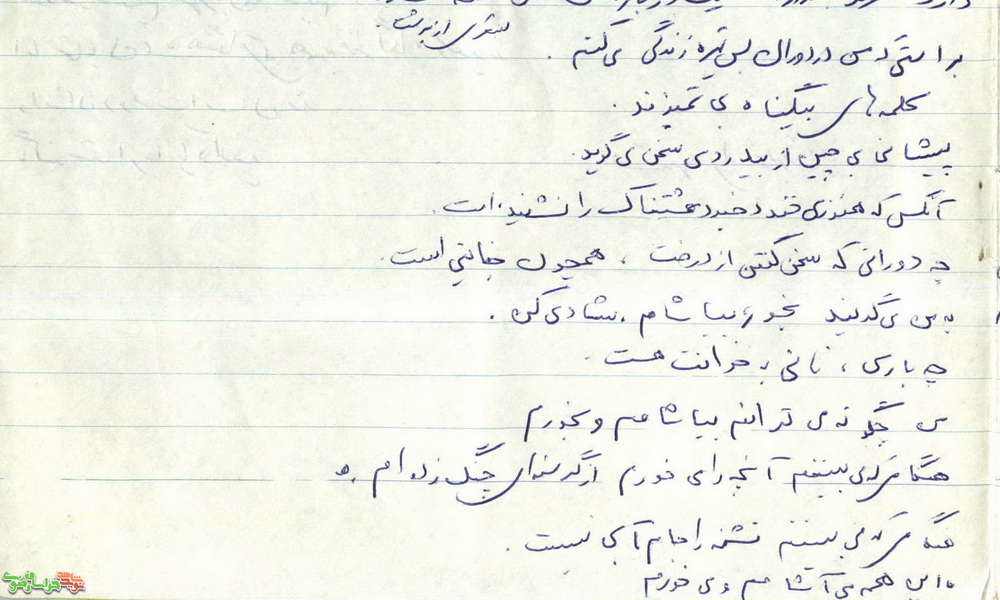 شعری از برشت.
براستی که من در دوران بس تیره زندگی می‌کنم.
کلمه‌های بیگناه بی‌تمیزند.
پیشانی بی‌چین از بیدردی سخن می‌گوید.
آنکس که هنوز می‌خندد خبر دهشتناک را نشنیده است.
چه دورانی که سخن گفتن از درخت، همچون جنایتی است.
به من می‌گویند بخور، بیاشام، شادی کن.
چه باری، نانی بر خوانت هست.
من چگونه می‌توانم بیاشامم و بخورم
هنگامی که می‌بینم آنچه را می‌خورم از گرسنه‌ای چنگ زده‌ام.
هنگامی که می‌بینم تشنه را جام آبی نیست.
با این همه می‌آشامم و می‌خورم